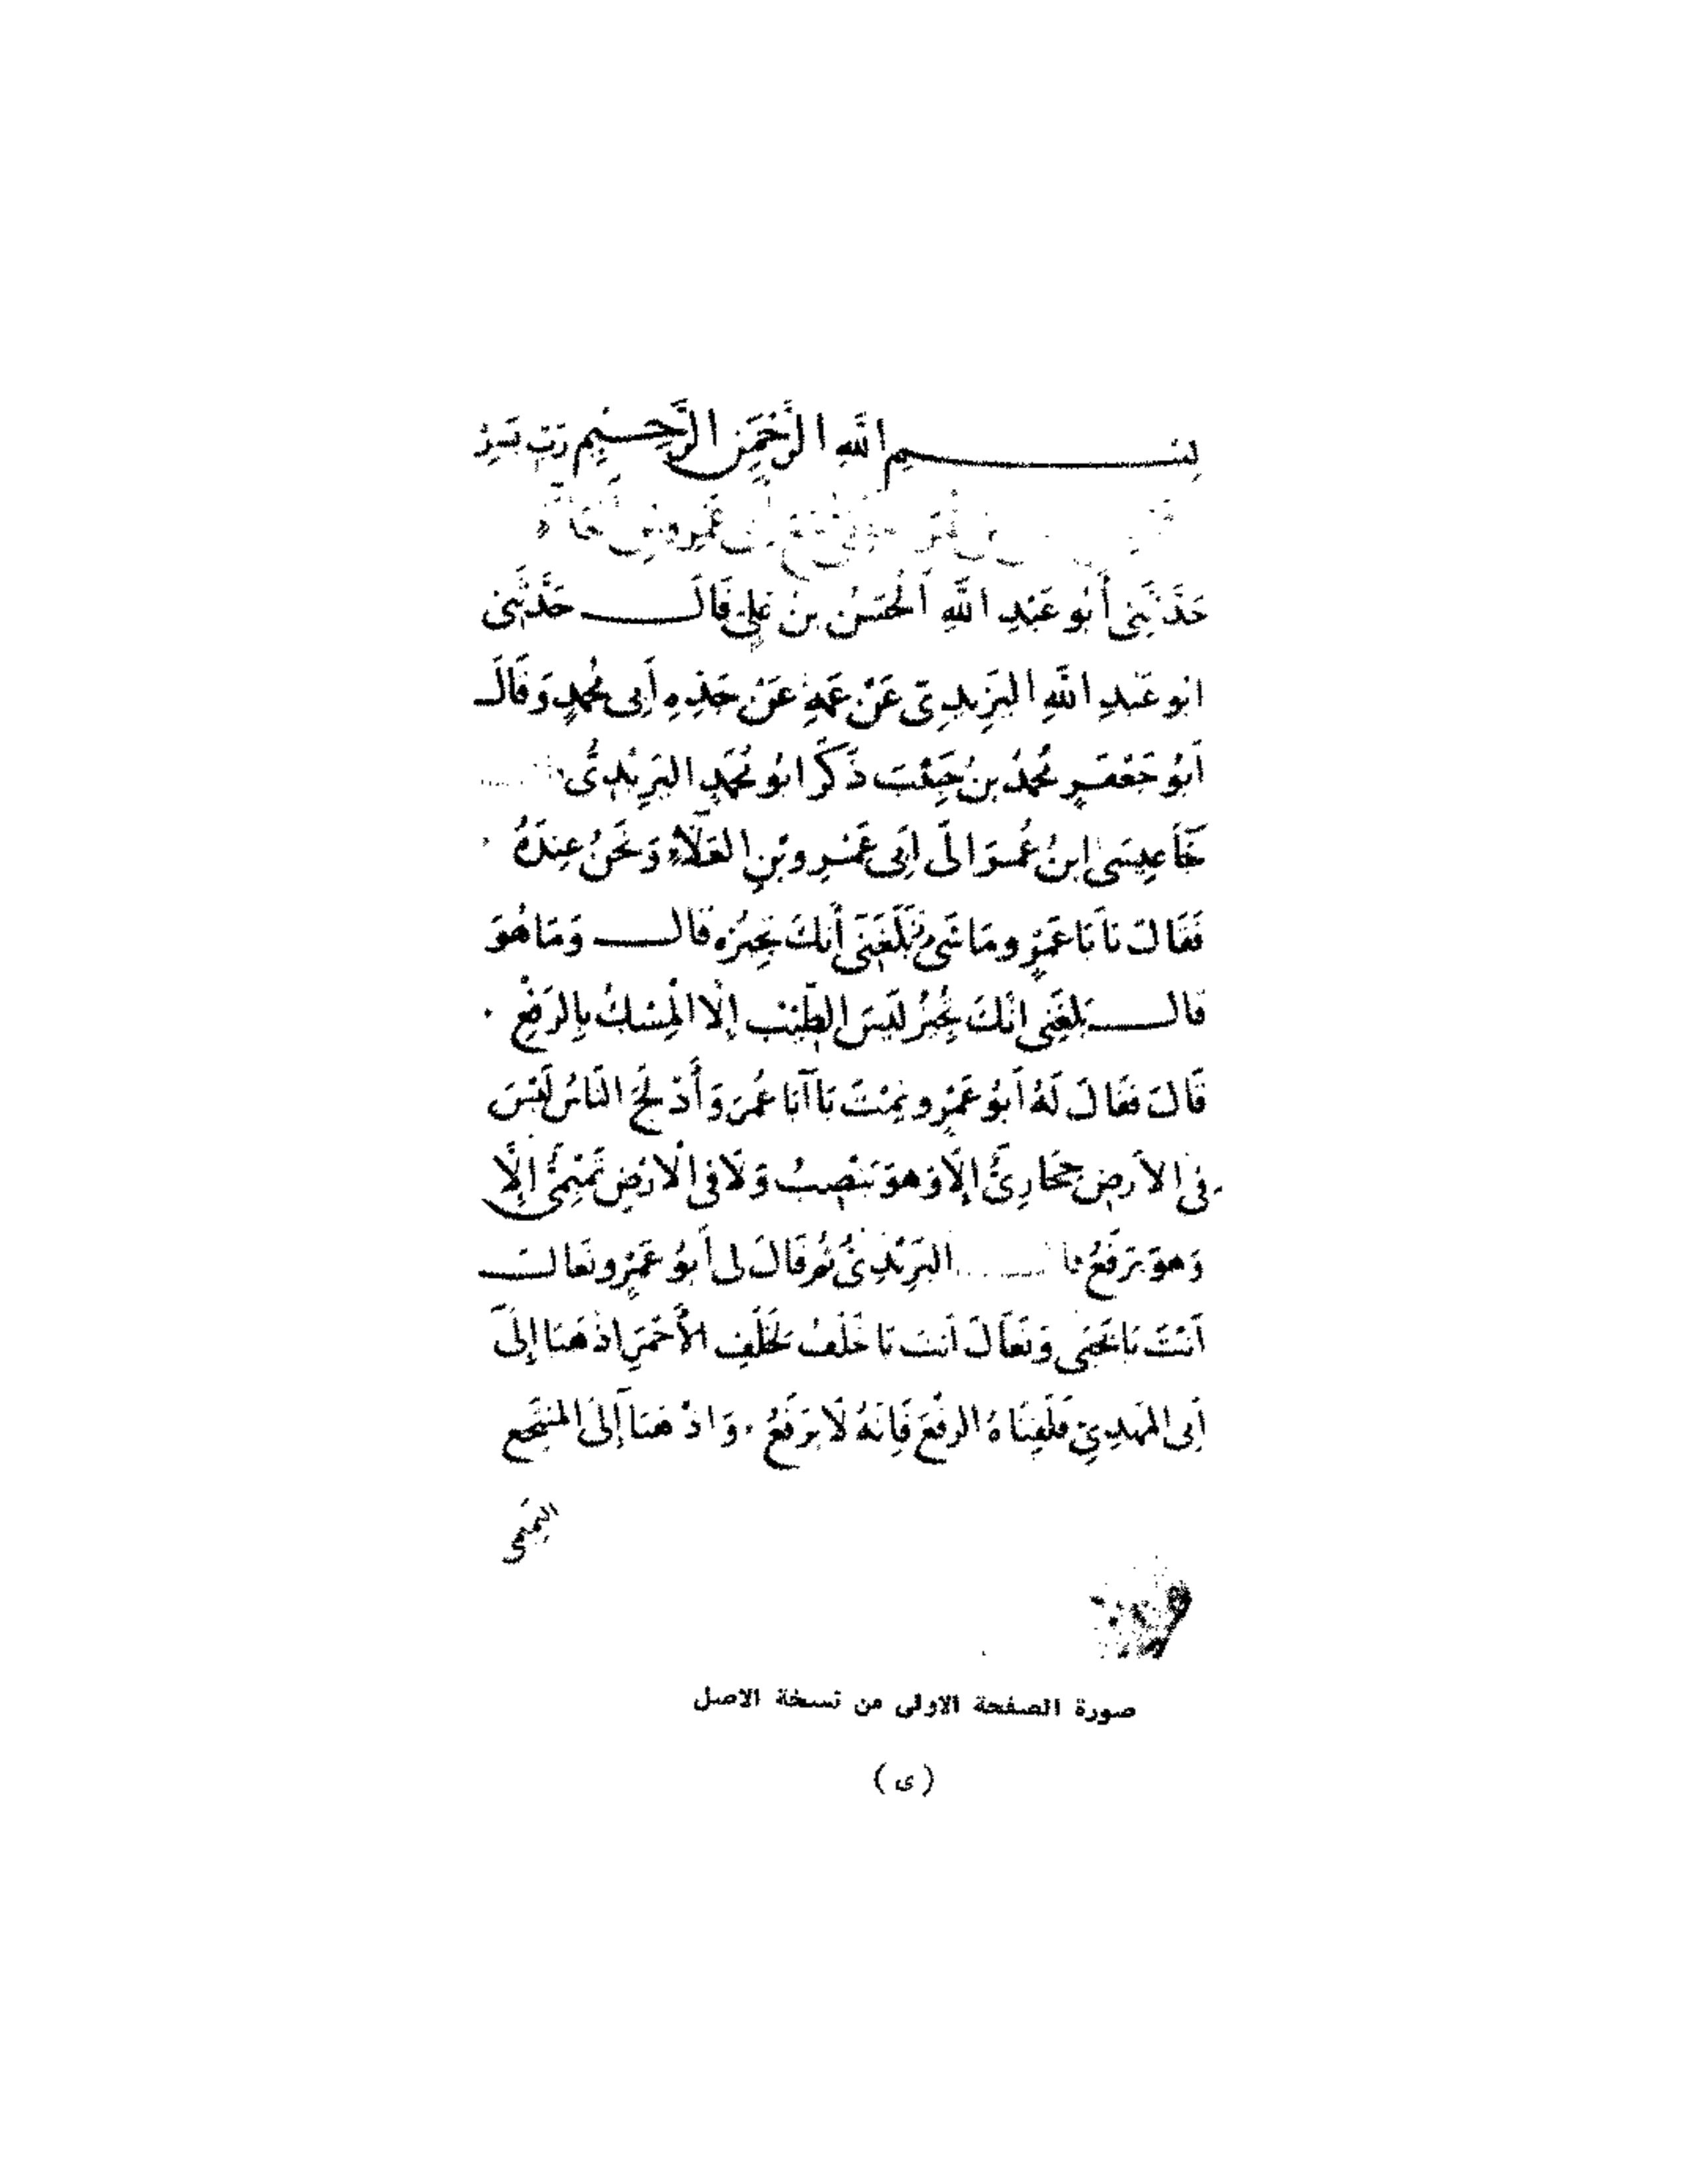 بِسْمِ اللَّهِ الرَّحْمَنِ الرَّحِيمِ رَبِّ يَسِّرْ
عَمْرِو بْنِ
حَدَّثَنِي أَبُو عَبْدِ اللَّهِ الْحَسَنُ بْنُ عَلِيٍّ قَالَ حَدَّثَنِي
ابُو عَبْدِ اللَّهِ الْيَزِيدِيّ عَنْ عَمِّهِ عَنْ جَدِّهِ أَبِي مُحَمَّدٍ وَقَالَ
أَبُو جَعْفَرٍ مُحَمَّدُ بْنُ حَبِيْبَ ذَكَرَ ابُو مُحَمَّدٍ الْيَزِيْدِيُّ
جَاءَ عِيسَى ابْنُ عُمَرَ الَى أَبِي عَمْرِو بْنِ الْعَلَاءِ وَنَحْنُ عِنْدَهُ
فَقَالَ يَا أَبَا عَمْرٍو مَا شَيْءٌ بَلَغَنِي أَنَّكَ تُجِيزُهُ قَالَ وَمَا هُوَ
قَالَ بَلَغَنِي انَّكَ تُجِيزُ لَيْسَ الطِّيْبُ إِلَّا الْمِسْكُ بِالرَّفْعِ .
قَالَ فَقَالَ لَهُ أَبُو عَمْرٍو نِمْتَ يَا أَبَا عُمَرَ وَأَدْلَجَ النَّاسُ لَيْسَ
فِي الْأَرْضِ حِجَازِيٌّ إِلَّا وَهُوَ يَنْصِبُ وَلَا فِي الْارْضِ تَمِيْمِيٌّ إِلَّا
وَهُوَ يَرْفَعُ الْيَزِيْدِيُّ ثُمَّ قَالَ لِي أَبُو عَمْرٍو تَعَالَ
أَنْتَ يَا يَحْيَى وَتَعَالَ أَنْتَ يَا خَلَفُ لِخَلَفٍ الْأَحْمَرِ اذْهَبَا إِلَى
أَبِي الْمَهْدِيِّ فَلَقِّنَاهُ الرَّفْعَ فَإِنَّهُ لَا يَرْفَعُ . وَاذْهَبَا إِلَى الْمُنْتَجِعِ
التَّمِيمِي
صورة الصفحة الاولى من نسخة الاصل
( ى )